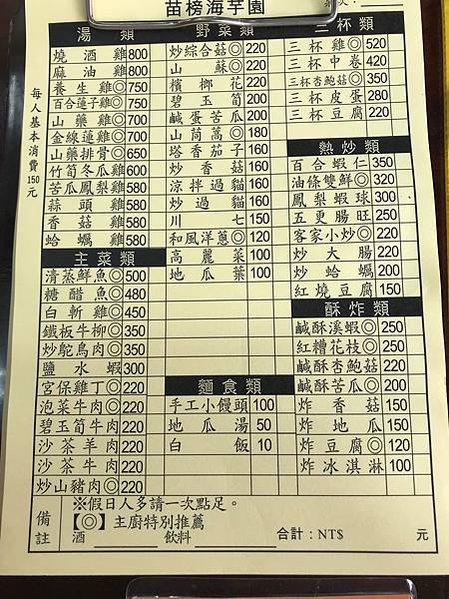 苗榜海芋園
每人基本消費150元
湯類
燒酒雞 800
麻油雞 800
養生雞◎ 750
百合蓮子雞◎ 750
山藥雞 700
金線蓮雞◎ 700
山藥排骨◎ 650
竹筍冬瓜雞 600
苦瓜鳳梨雞 580
蒜頭雞 580
香菇雞 580
蛤蠣雞 580
主菜類
清蒸鮮魚◎ 500
糖醋魚◎ 480
白斬雞◎ 450
鐵板牛柳◎ 350
炒鴕鳥肉◎ 350
鹽水蝦 300
宮保雞丁◎ 220
泡菜牛肉◎ 220
碧玉筍牛肉 220
沙茶羊肉 220
沙茶牛肉 220
炒山豬肉◎ 220
野菜類
炒綜合菇◎ 220
山蘇◎ 220
檳榔花 220
碧玉筍 200
鹹蛋苦瓜 200
山茼蒿◎ 180
塔香茄子 160
炒香菇 160
涼拌過貓 160
炒過貓 160
川七 150
和風洋蔥◎ 120
高麗菜 100
地瓜葉 100
麵食類
手工小饅頭 100
地瓜湯 50
白飯 10
三杯類
三杯雞◎ 520
三杯中卷 420
三杯杏鮑菇◎ 350
三杯皮蛋 280
三杯豆腐 220
熱炒類
百合蝦仁 350
油條雙鮮◎ 320
鳳梨蝦球 300
五更腸旺 250
客家小炒◎ 220
炒大腸 220
炒蛤蠣 200
紅燒豆腐 150
酥炸類
鹹酥溪蝦◎ 250
紅糟花枝◎ 250
鹹酥杏鮑菇 220
鹹酥苦瓜◎ 200
炸香菇 150
炸地瓜 150
炸豆腐◎ 120
炸冰淇淋 100
備註
※假日人多請一次點足。
【◎】主廚特別推薦
酒 飲料 合計：NT$ 元